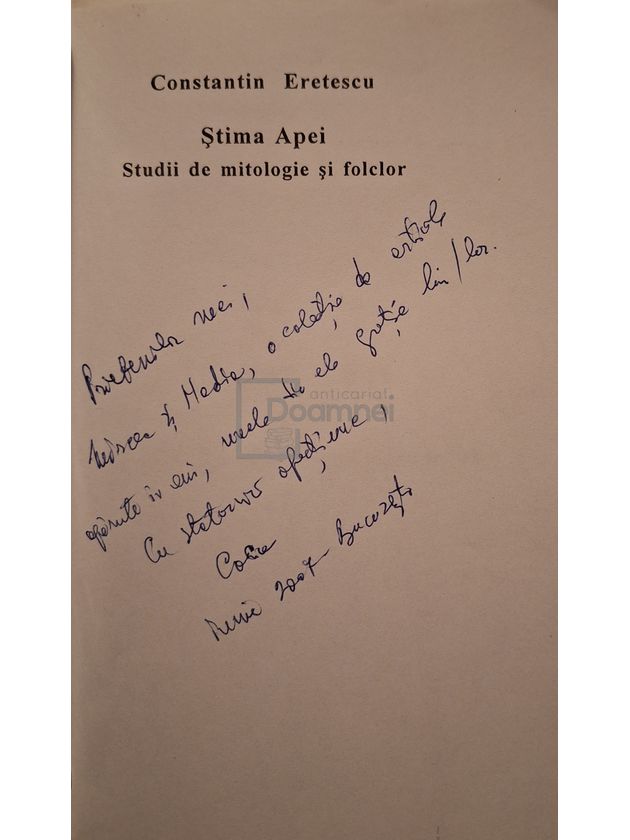 Constantin Eretescu
Ştima Apei
Studii de mitologie şi folclor
Prietenilor mei,
Mircea și Nadia, o colecție de articole
apărute în ani, unele din ele grație lui/lor.
Cu statornică afecțiune,
Costea
Iunie 2007 București
anticariat
Doamnei